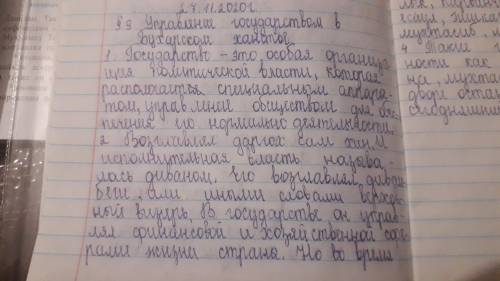 27.11.2020г
§9 Управление государством в
Бухарском ханстве
1. Государство – это особая организа
ция политической власти, которая
располагаетя специальным аппара-
том, управление обществом для обес
печения его нормально деятельности.
2 Возглавлял даргох сам хан, и
исполнительная власть называ
лась диваном. Его возглавлял диван
беги, или иными словами верхов
ный визирь, В государстве он управ
лял финансовой и хозяйственной сфе
рами жизни страны. Но во время
4 Такие
ности как
дворе оста
сегодняшни